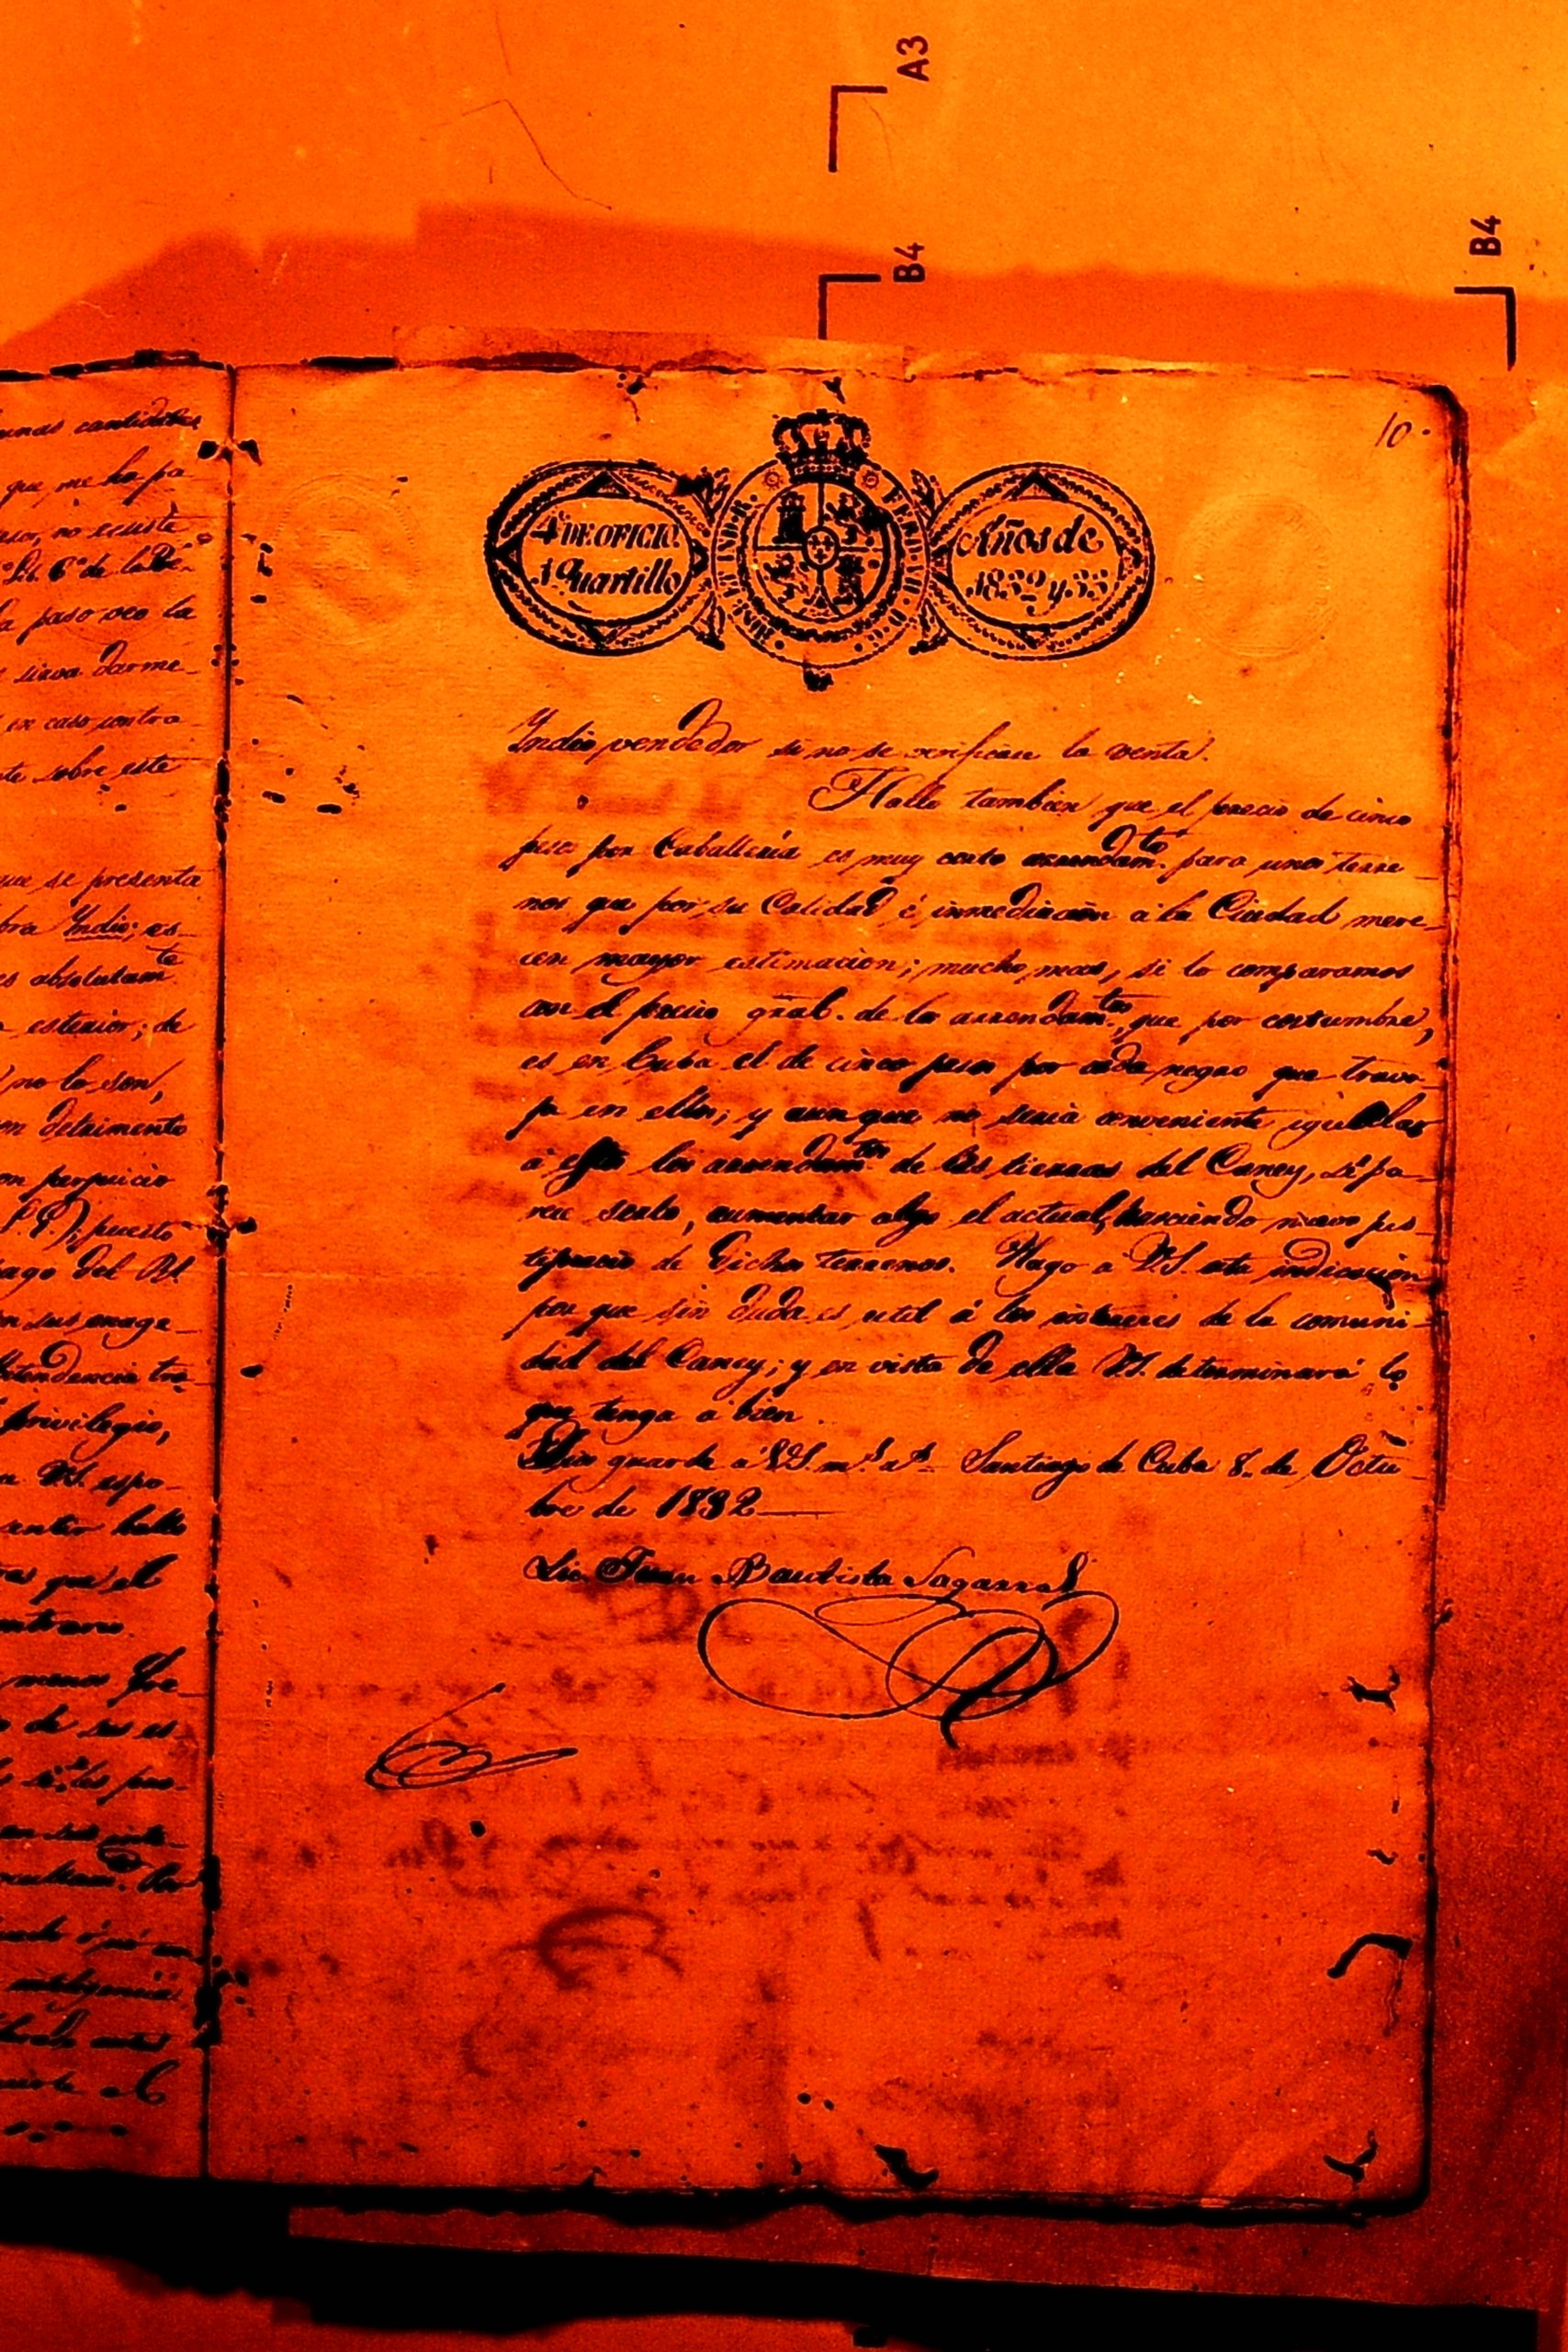 A3
B4
B4
10.
4º DE OFICIO.
1 Quartillo
HISP. ET IND. R.
FERD. VII. D. G.
Años de
1832 y 33
Indio vendedor si no se verificase la venta.
Hallo tambien que el precio de cinco
pesos por Caballeria es muy corto arrendam.to para unos terre
nos que por su Calidad é inmediacion á la Ciudad mere-
cen mayor estimacion; mucho mas, si lo comparamos
con el precio gral. de los arrendam.tos que por costumbre,
es en Cuba el de cinco pesos por cada negro que trava-
ja en ellos; y aun que no seria conveniente igualar
á estos los arrendam.tos de las tierras del Caney, si pa-
rece serlo, aumentar algo el actual, haciendo nuevo jus
tiprecio de dichos terrenos. Hago a V.S. esta indicacion
por que sin duda es util á los intereses de la comuni-
dad del Caney; y en vista de ella V.S. determinará lo
que tenga a bien.
Dios guarde á V.S. m.s a.s Santiago de Cuba 8. de Octu-
bre de 1832
Lic. Juan Bautista Sagarra
unas cantidades
que me ha pa
no ecsiste
la paso veo la
sirva darme
en caso contra
te sobre este
que se presenta
bra Indio; es-
es absolutam.te
esterior; de
no lo son,
detrimento
perjuicio
puesto
pago del Rl
en sus enage-
privilegio,
V.S. espo-
hallo
que el
contrario.
menos
de sus es